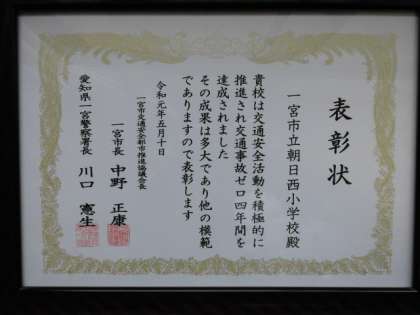 表彰状
一宮市立朝日西小学校殿
貴校は交通安全活動を積極的に
推進され交通事故ゼロ四年間を
達成されました
その成果は多大であり他の模範
でありますので表彰します
令和元年五月十日
一宮市交通安全都市推進協議会長
一宮市長 中野正康
愛知県一宮警察署長 川口憲生